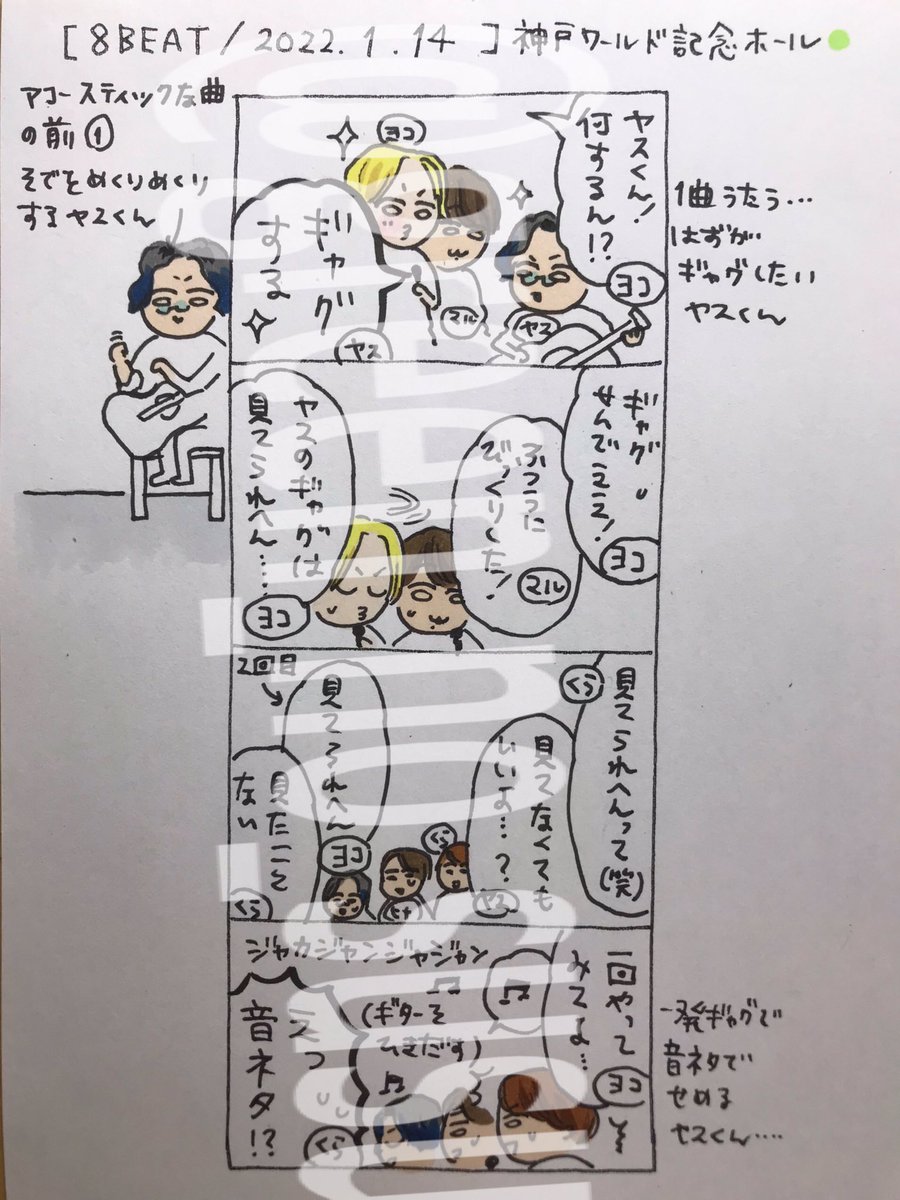 [8BEAT/2022.1.14]神戸ワールド記念ホール
アコースティックな曲
の前①
そでをめくりめくり
するヤスくん
ヤスくん!
何するん!?
ヨコ
ヨコ
マル
ヤス
ギャグ
する
ヤス
1曲うたう…
はずが
ギャグしたい
ヤスくん
ギャグ
せんでええ!
ヨコ
びっくりした!
マル
ヤスのギャグは
見てられへん…
ヨコ
見てられへんって(笑)
くら
見てなくても
いいよ…?
ヤス
2回目
見てられへん
ヨコ
見たことを
ない
くら
くら
ヒナ
一回やって
みてよ…
ヨコ
ジャカジャンジャジャン
(ギターを
ひきだす)
えっ
音ネタ!?
くら
一発ギャグで
音ネタで
せめる
ヤスくん….